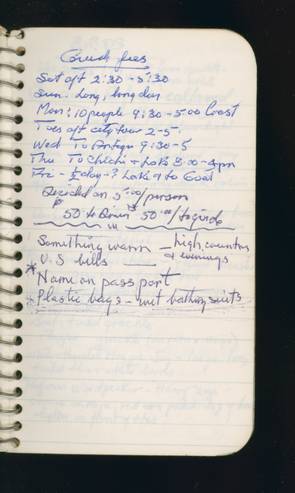 Guide fees
Sat aft 2:30 - 5:30
Sun: Long, long day
Mon: 10 people 9:30 - 5:00 Coast
Tues aft city tour 2-5
Wed To Antigua 9:30 - 5
Thu To Chichi & Lake 8:00 - 4pm
Fri - ½ day? Lake to Guat
Decided on 5.00/person
50 to Driver 50.00/to guide
Something warm - high country & evenings
U.S bills
* Name on passport
* Plastic bags - wet bathing suits